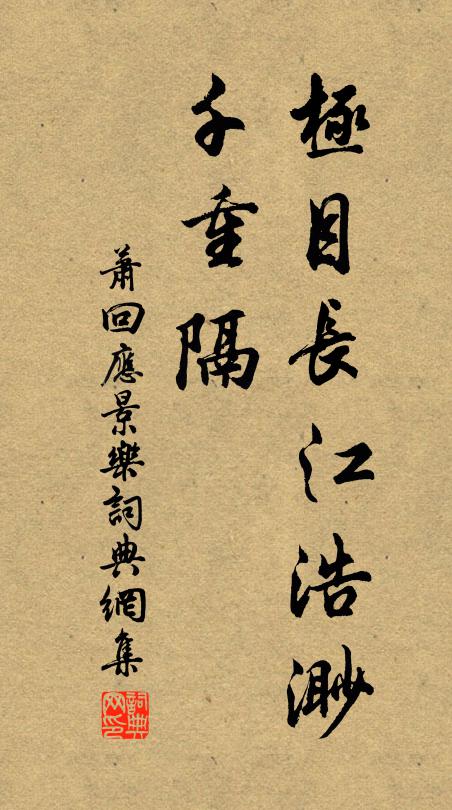 極目長江浩渺
千重隔
蕭回應景樂詞典網集
詞典
網印